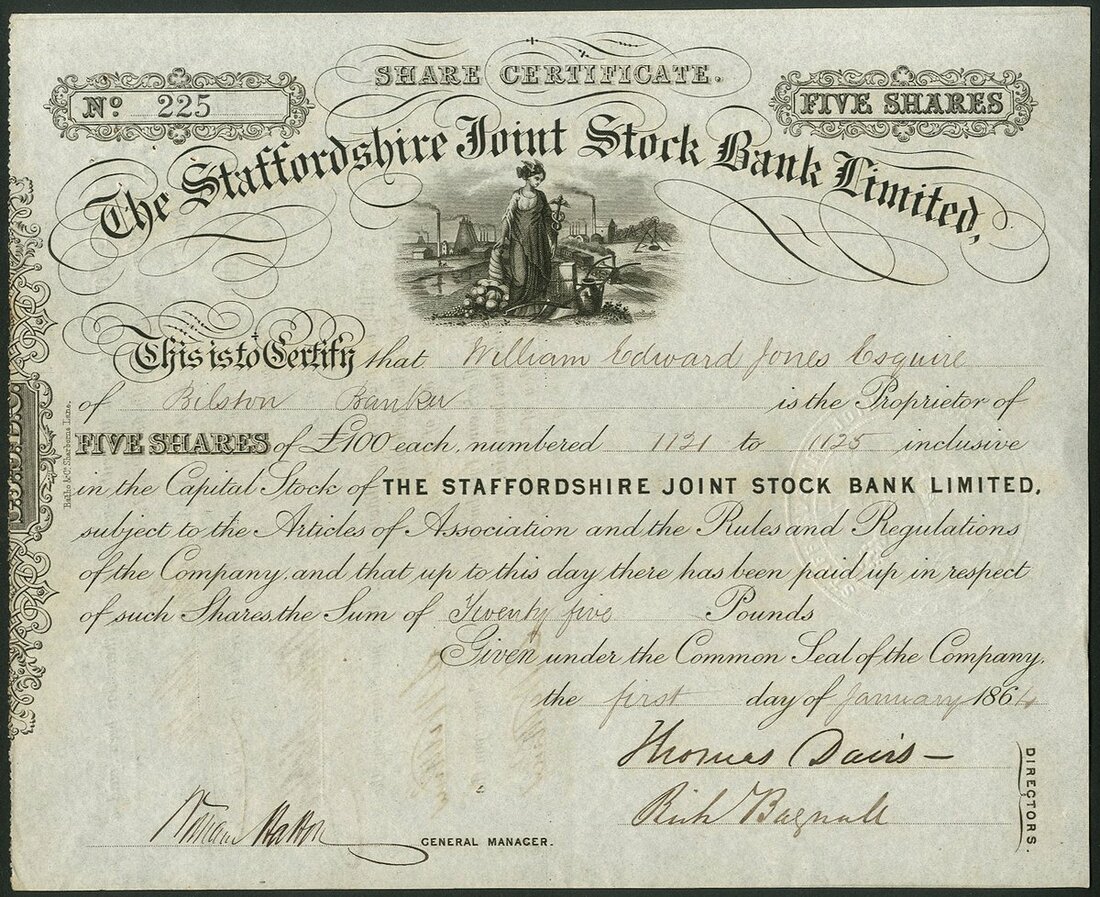 SHARE CERTIFICATE.
No. 225
FIVE SHARES
The Staffordshire Joint Stock Bank Limited,
This is to Certify that William Edward Jones Esquire
of Bilston Banker is the Proprietor of
FIVE SHARES of £100 each, numbered 1121 to 1125 inclusive
in the Capital Stock of THE STAFFORDSHIRE JOINT STOCK BANK LIMITED,
subject to the Articles of Association and the Rules and Regulations
of the Company, and that up to this day there has been paid up in respect
of such Shares, the Sum of Twenty five Pounds
Given under the Common Seal of the Company,
the first day of January 1864
Thomas Davis
Rich Bagnall
DIRECTORS.
GENERAL MANAGER.